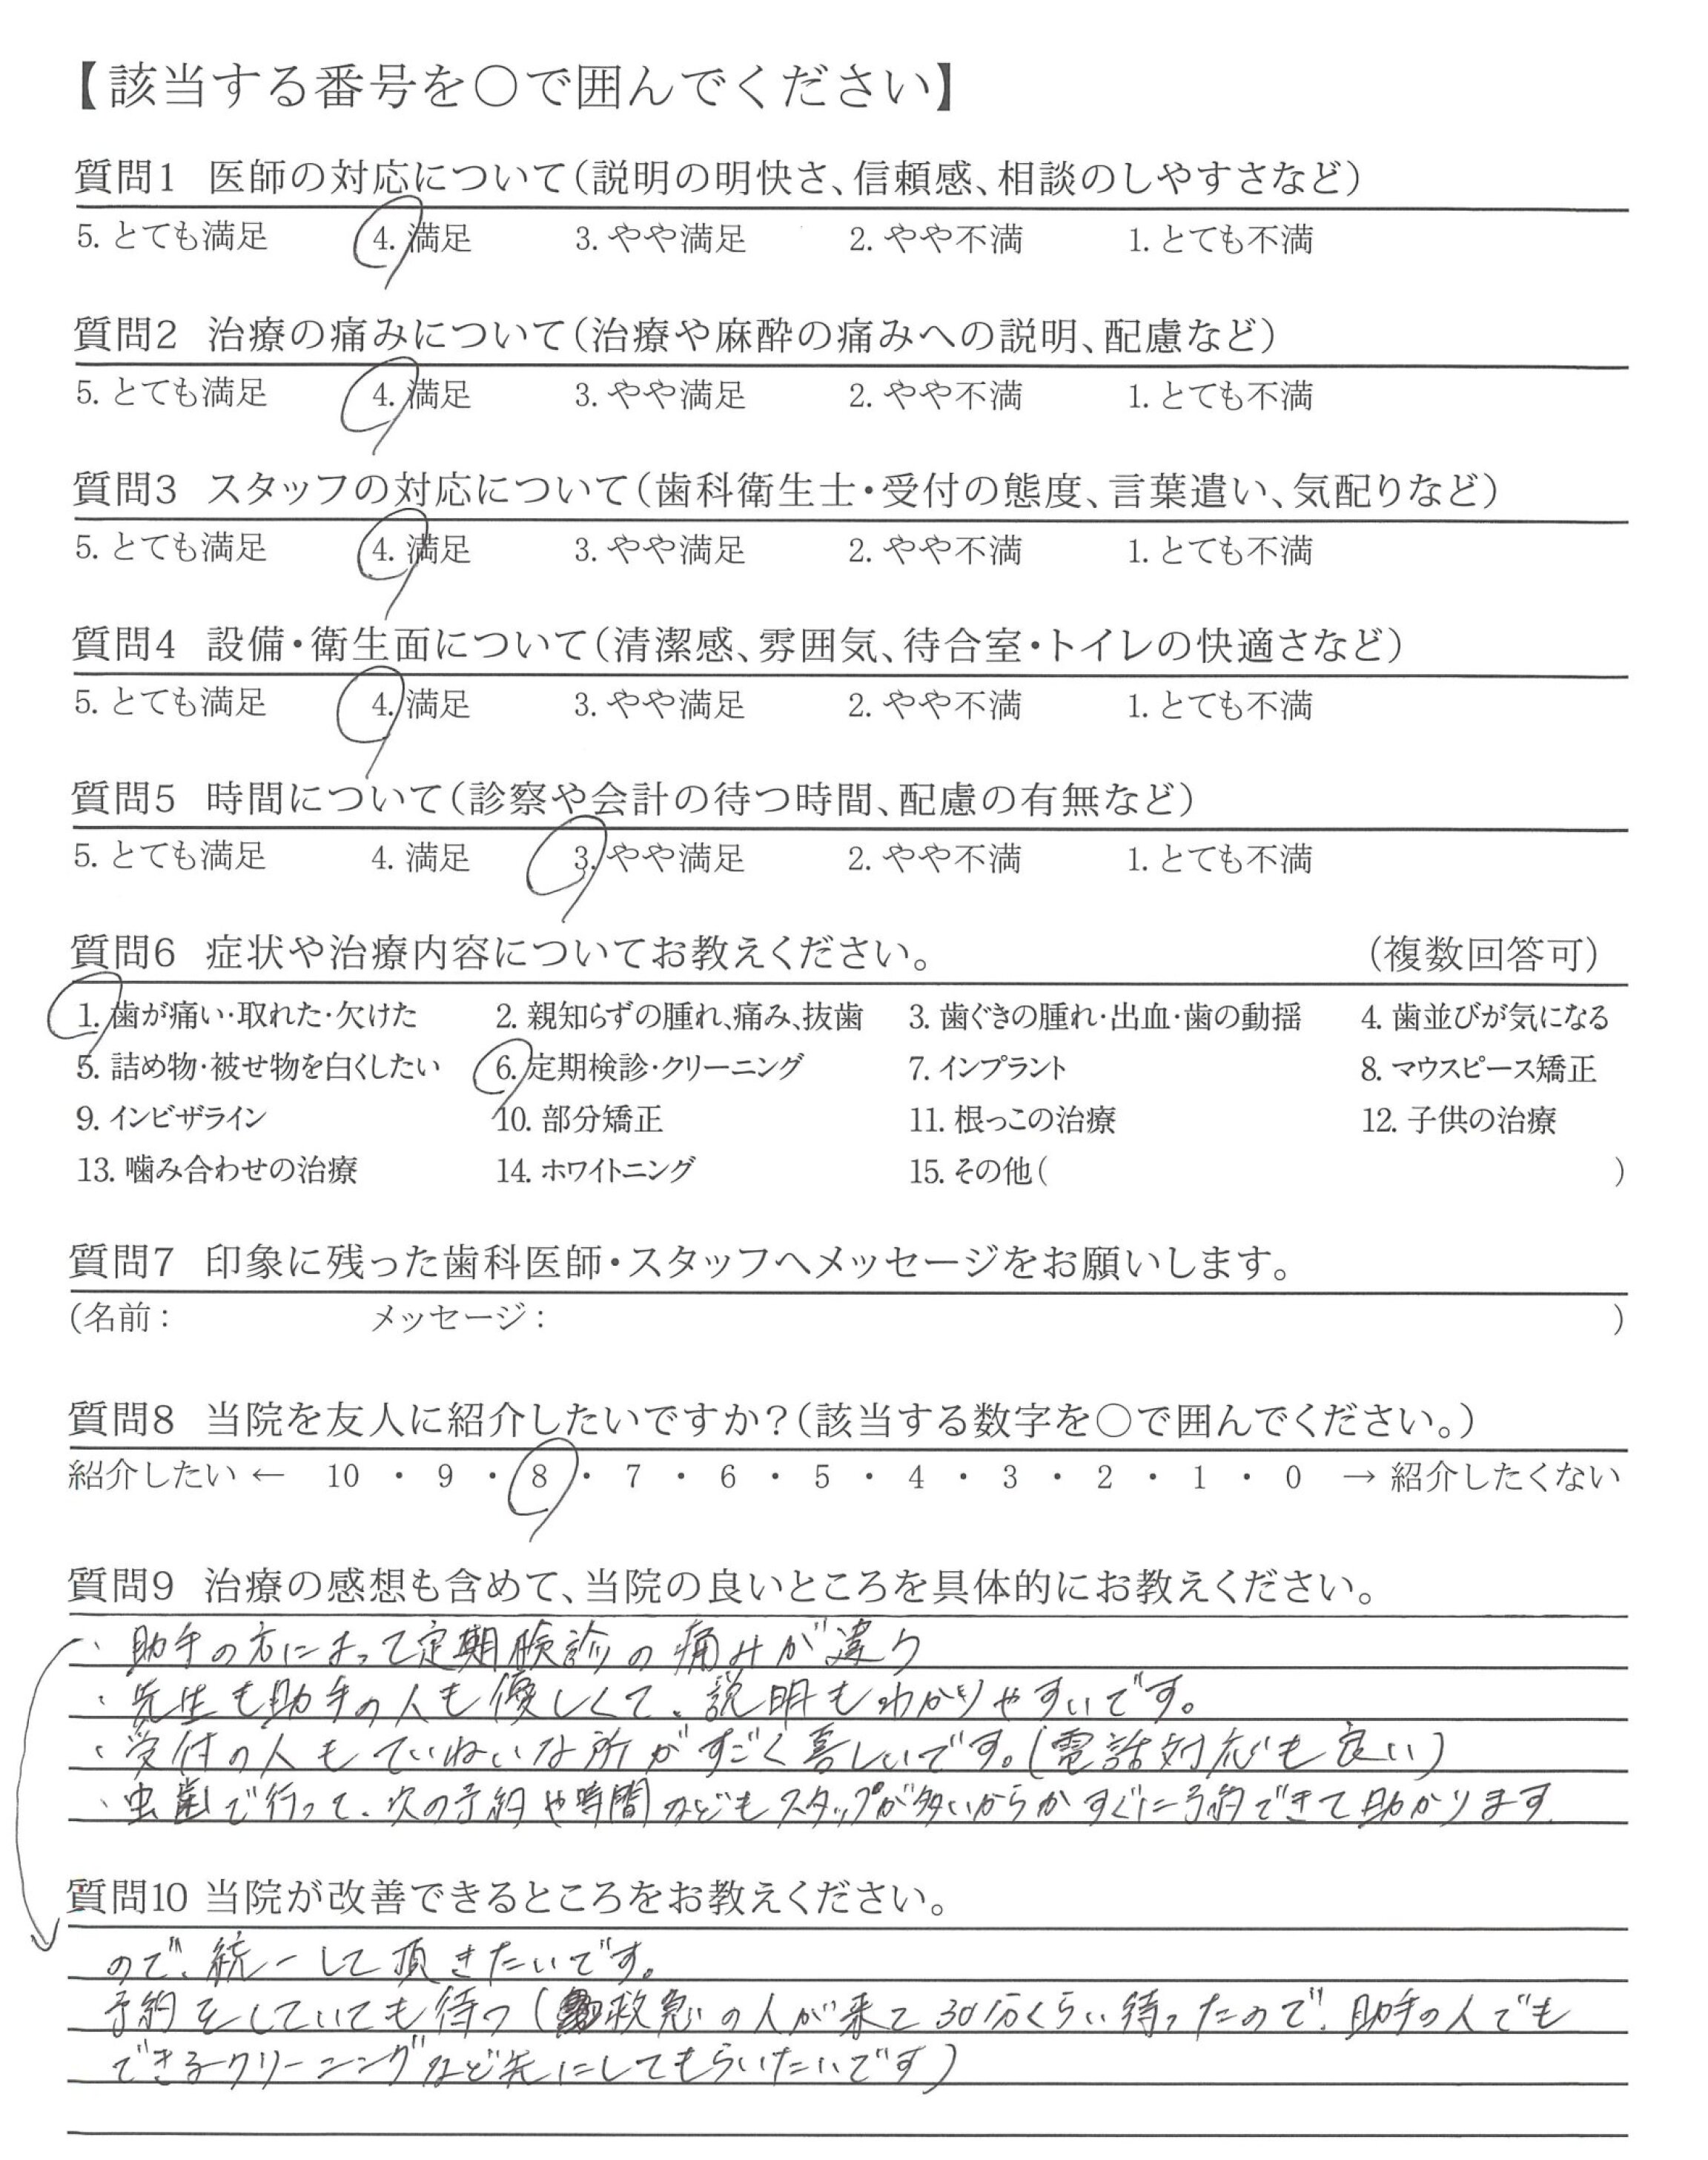 【該当する番号を〇で囲んでください】
質問1 医師の対応について(説明の明快さ、信頼感、相談のしやすさなど)
5. とても満足 4. 満足 3. やや満足 2. やや不満 1. とても不満
質問2 治療の痛みについて(治療や麻酔の痛みへの説明、配慮など)
5. とても満足 4. 満足 3. やや満足 2. やや不満 1. とても不満
質問3 スタッフの対応について(歯科衛生士・受付の態度、言葉遣い、気配りなど)
5. とても満足 4. 満足 3. やや満足 2. やや不満 1. とても不満
質問4 設備・衛生面について(清潔感、雰囲気、待合室・トイレの快適さなど)
5. とても満足 4. 満足 3. やや満足 2. やや不満 1. とても不満
質問5 時間について(診察や会計の待つ時間、配慮の有無など)
5. とても満足 4. 満足 3. やや満足 2. やや不満 1. とても不満
質問6 症状や治療内容についてお教えください。 (複数回答可)
1. 歯が痛い・取れた・欠けた 2. 親知らずの腫れ、痛み、抜歯 3. 歯ぐきの腫れ・出血・歯の動揺 4. 歯並びが気になる
5. 詰め物・被せ物を白くしたい 6. 定期検診・クリーニング 7. インプラント 8. マウスピース矯正
9. インビザライン 10. 部分矯正 11. 根っこの治療 12. 子供の治療
13. 噛み合わせの治療 14. ホワイトニング 15. その他( )
質問7 印象に残った歯科医師・スタッフへメッセージをお願いします。
(名前: メッセージ: )
質問8 当院を友人に紹介したいですか?(該当する数字を〇で囲んでください。)
紹介したい ← 10 ・ 9 ・ 8 ・ 7 ・ 6 ・ 5 ・ 4 ・ 3 ・ 2 ・ 1 ・ 0 → 紹介したくない
質問9 治療の感想も含めて、当院の良いところを具体的にお教えください。
・助手の方によって定期検診の痛みが違う
・先生も助手の人も優しくて、説明もわかりやすいです。
・受付の人もていねいな所がすごく喜しいです。(電話対応も良い)
・虫歯で行って、次の予約や時間などもスタッフが多いからかすぐに予約できて助かります。
質問10 当院が改善できるところをお教えください。
ので、統一して頂きたいです。
予約をしていても待つ(救急の人が来て30分くらい待ったので、助手の人でも
できるクリーニングなど先にしてもらいたいです)